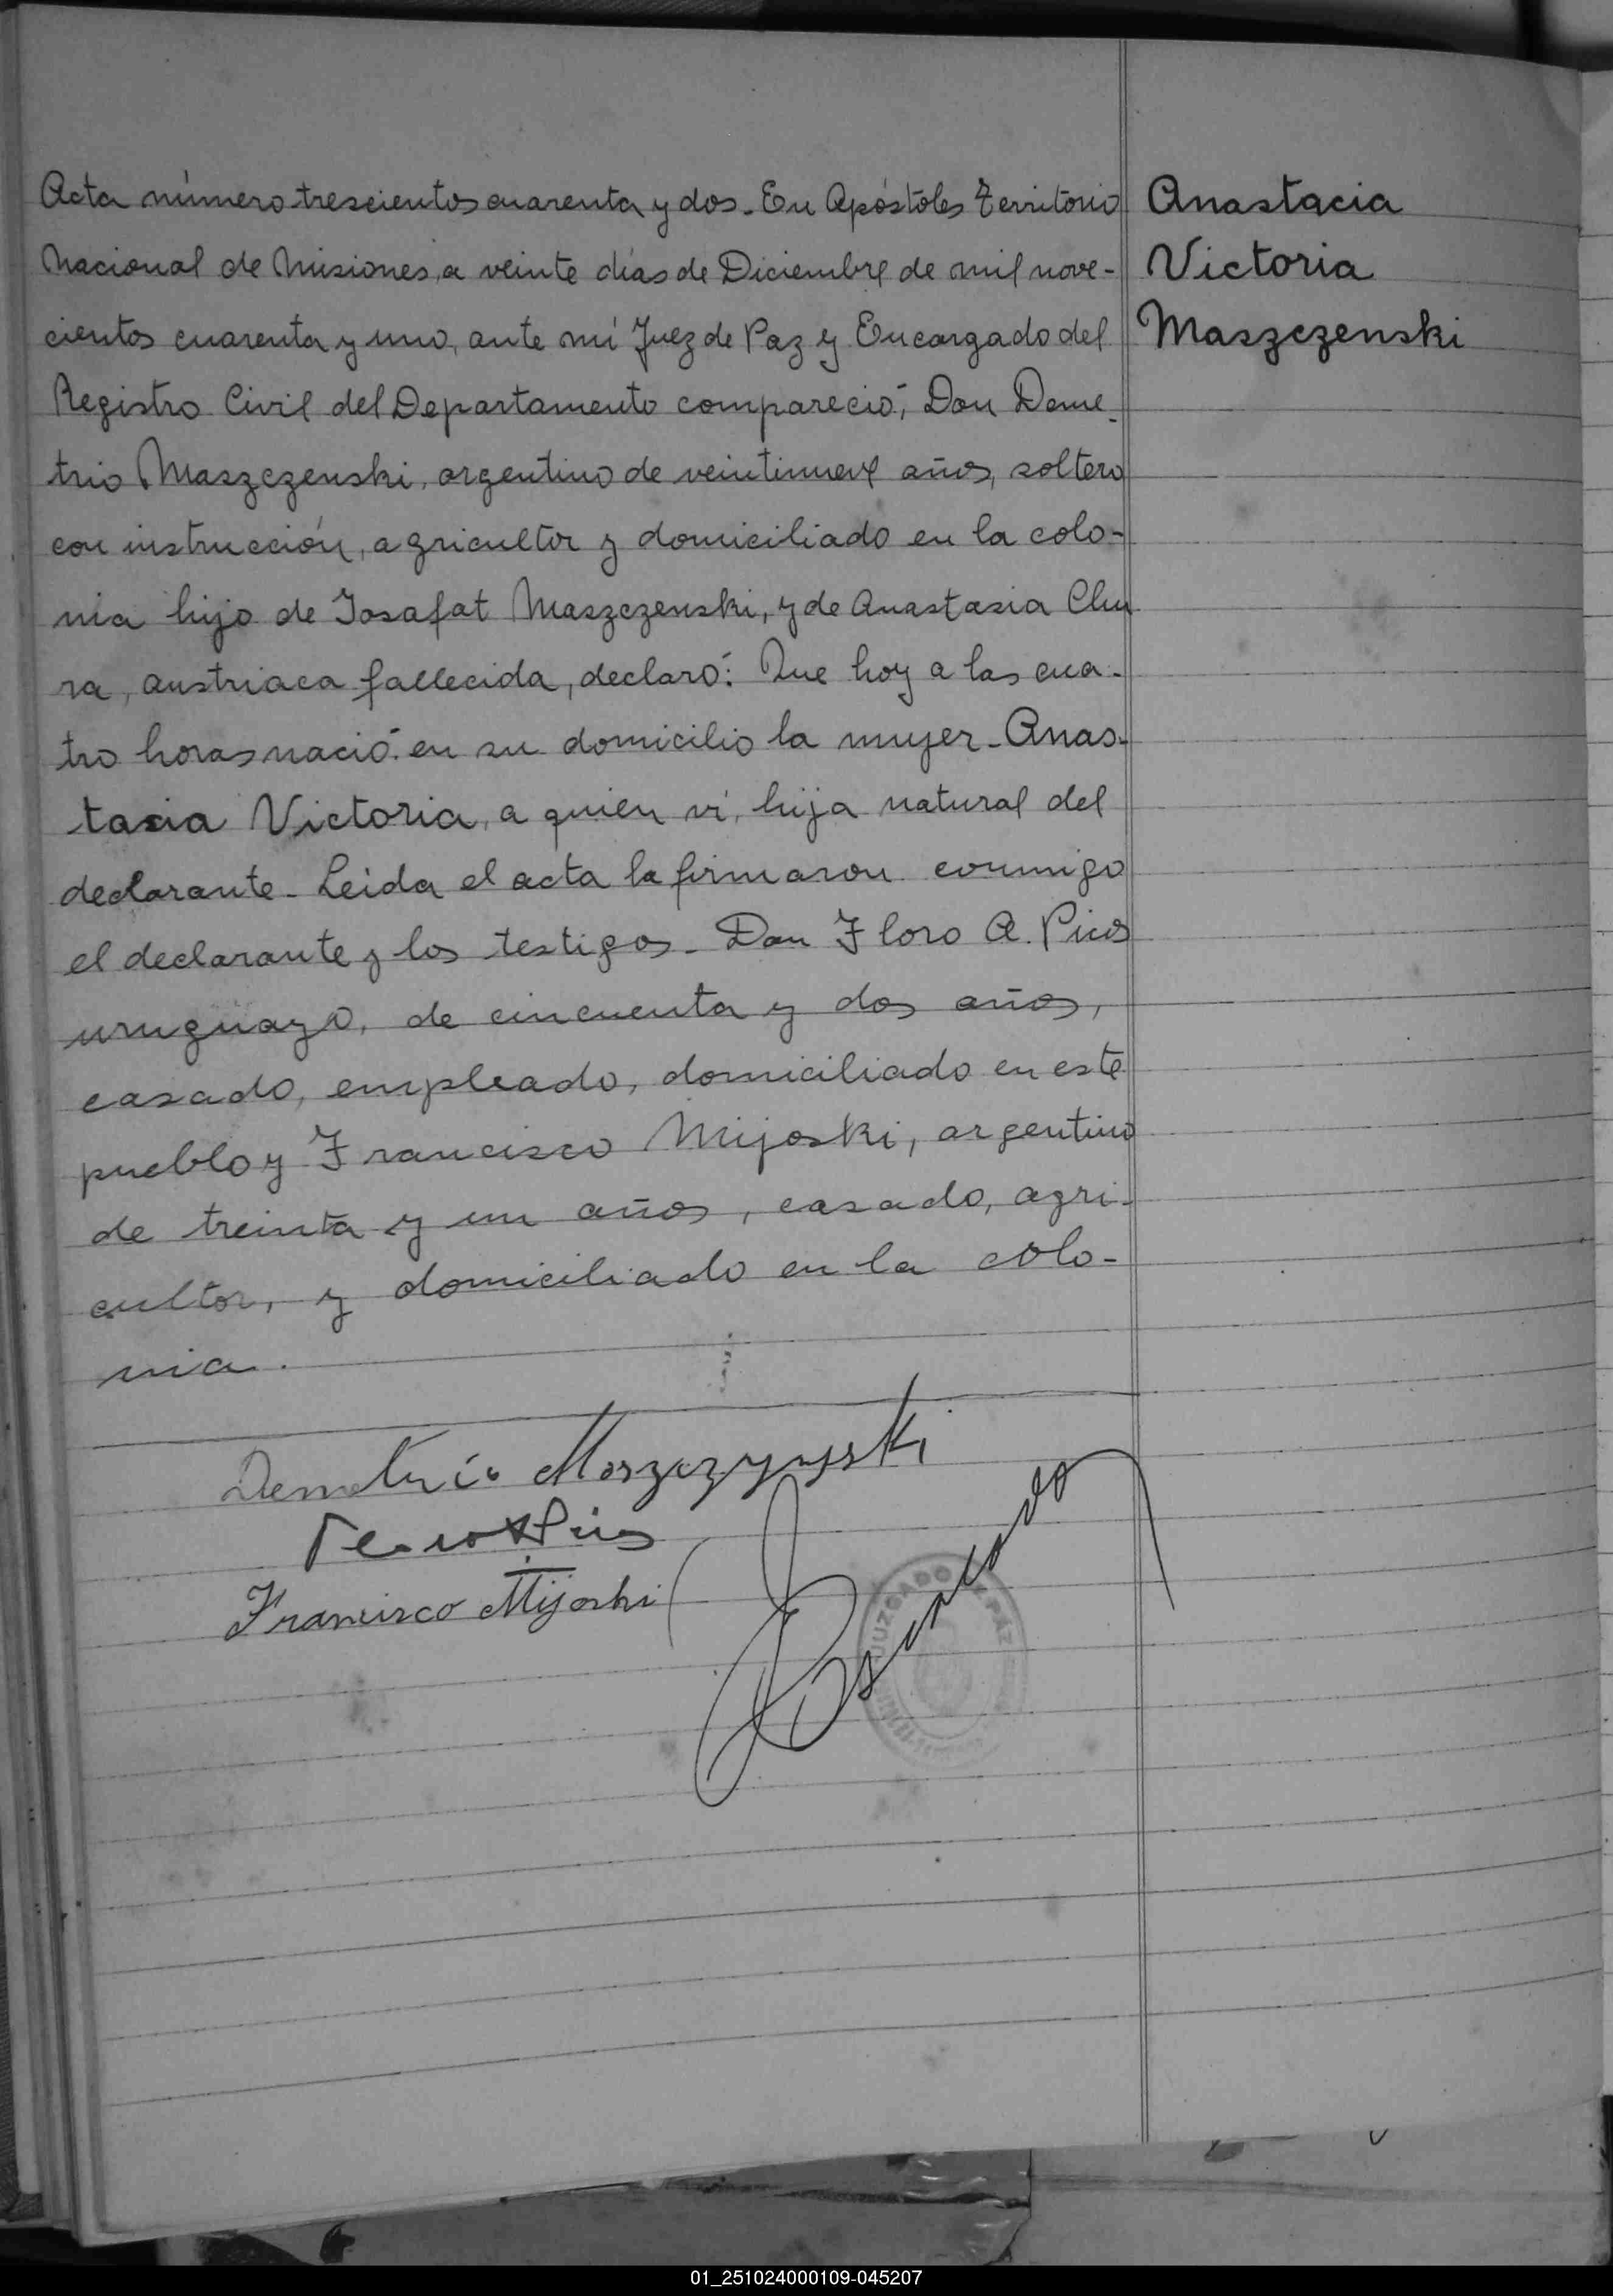 Acta número trescientos cuarenta y dos. En Apóstoles Territorio
Nacional de Misiones, a veinte días de Diciembre de mil nove-
cientos cuarenta y uno, ante mí Juez de Paz y Encargado del
Registro Civil del Departamento compareció, Don Deme-
trio Maszczenski, argentino de veintinueve años, soltero
con instrucción, agricultor y domiciliado en la colo-
nia hijo de Josafat Maszczenski, y de Anastasia Chu
ra, austriaca fallecida, declaró: Que hoy a las cua-
tro horas nació en su domicilio la mujer - Anas-
tasia Victoria, a quien ví, hija natural del
declarante. Leida el acta la firmaron conmigo
el declarante y los testigos - Don Floro A. Pios
uruguayo, de cincuenta y dos años,
casado, empleado, domiciliado en este
pueblo y Francisco Mijoski, argentino
de treinta y un años, casado, agri-
cultor, y domiciliado en la colo-
nia.
Anastacia
Victoria
Maszczenski
Demetrio Moszczynski
Francisco Mijoski
JUZGADO DE PAZ
01_251024000109-045207